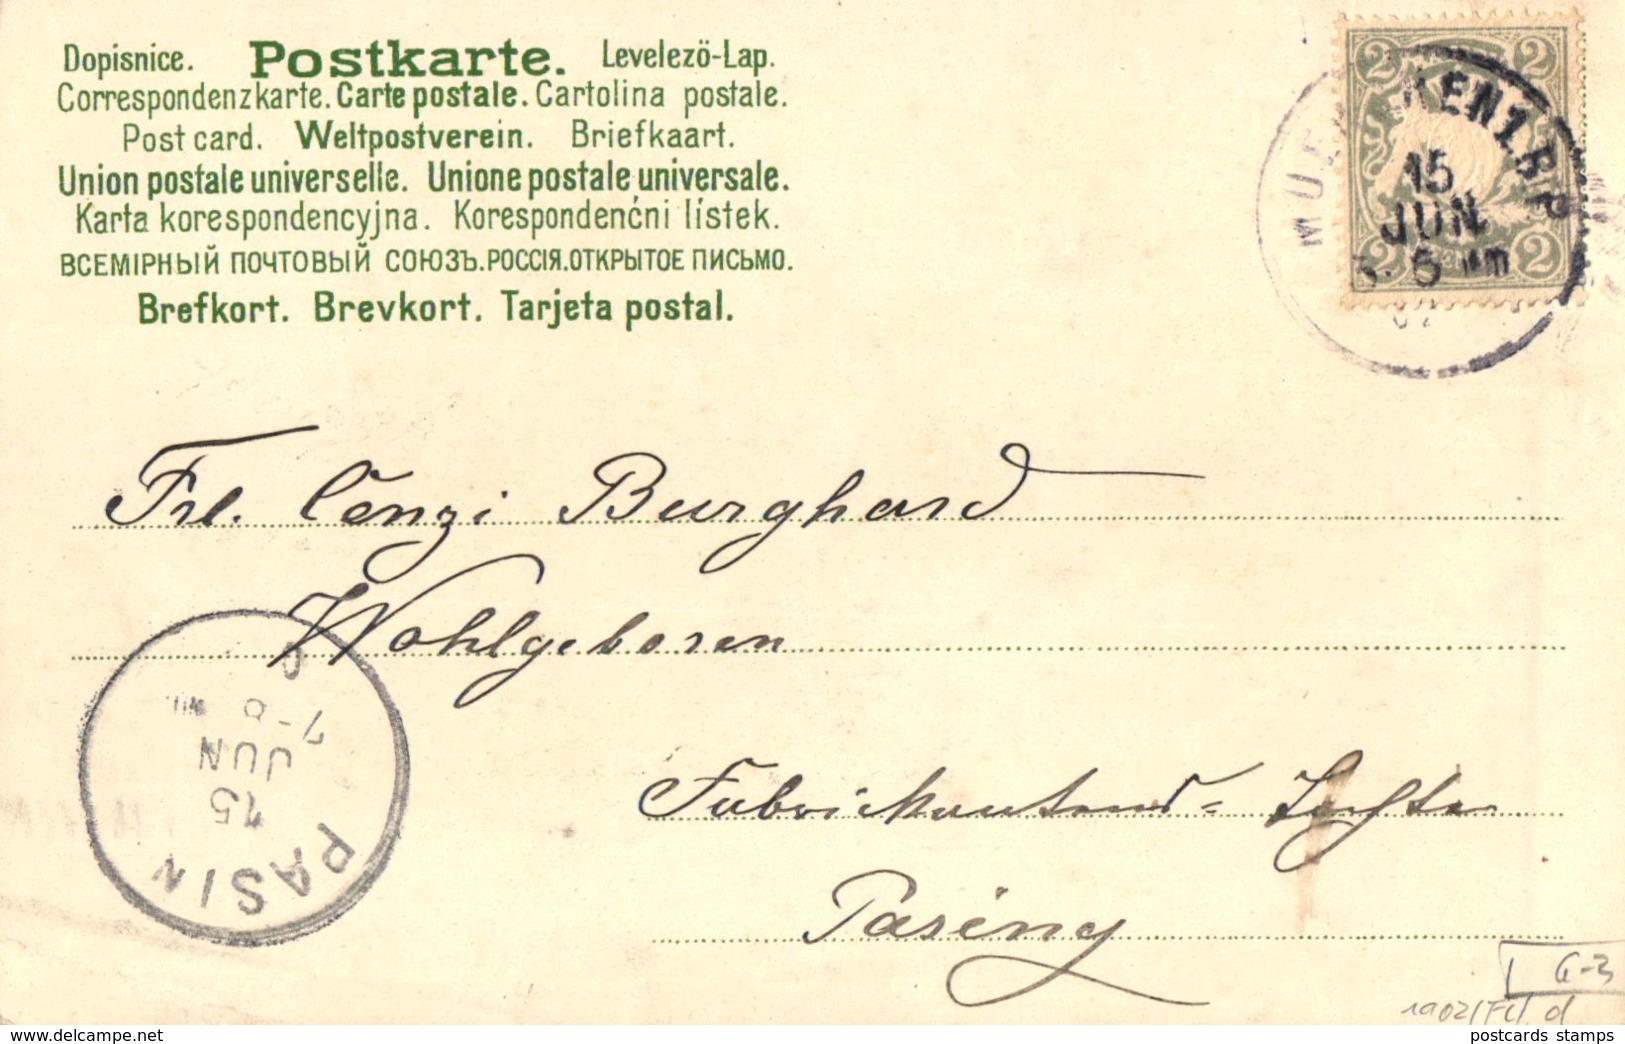 Dopisnice. Postkarte. Levelezö-Lap.
Correspondenzkarte. Carte postale. Cartolina postale.
Post card. Weltpostverein. Briefkaart.
Union postale universelle. Unione postale universale.
Karta korespondencyjna. Korespondenčni lístek.
ВСЕМІРНЫЙ ПОЧТОВЫЙ СОЮЗЪ.РОССІЯ.ОТКРЫТОЕ ПИСЬМО.
Brefkort. Brevkort. Tarjeta postal.
2 2
2 2
15
JUN
Frl. Cenzi Burghard
Wohlgeboren
Fabrickantens-
Pasing
7-8
JUN
15
PASIN
G-3
1902
postcards stamps
www.delcampe.net